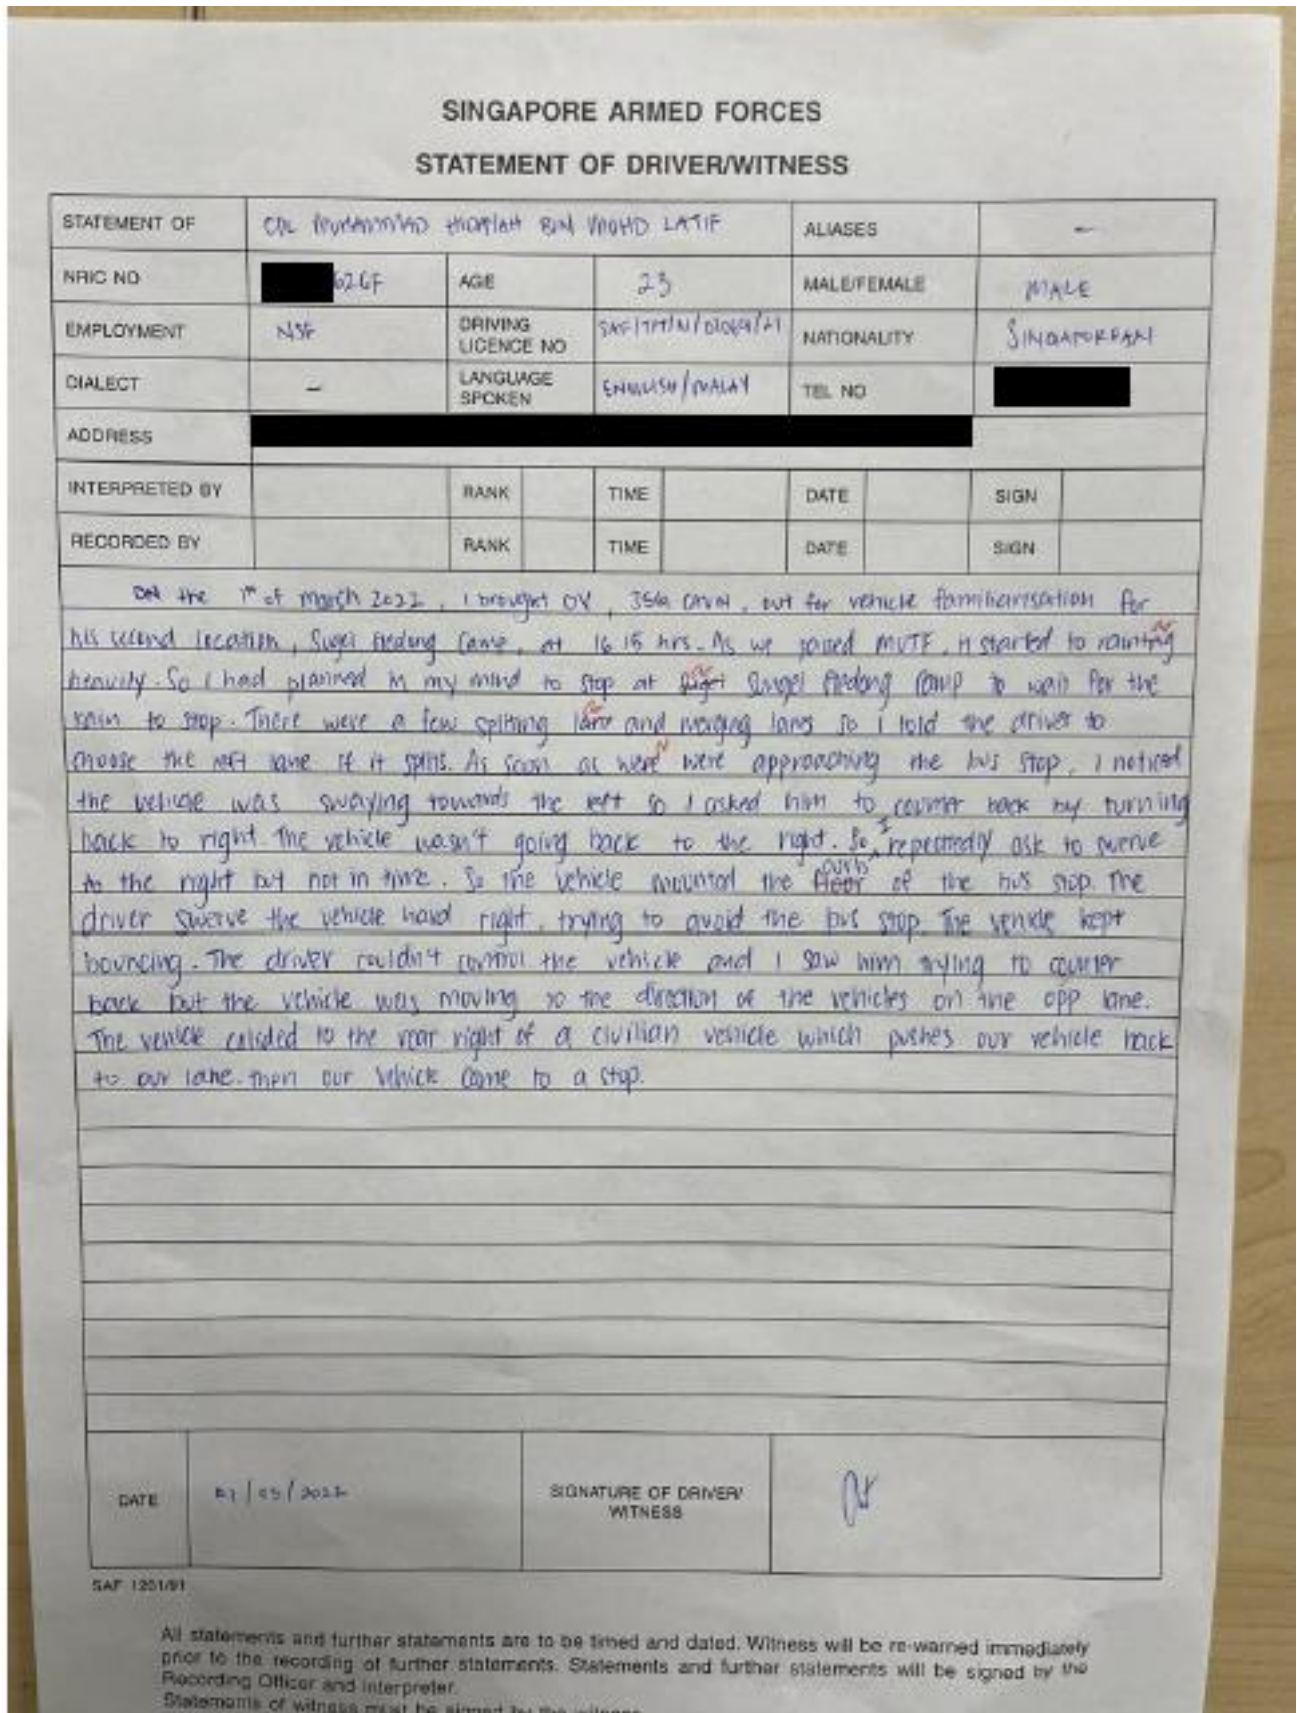 SINGAPORE ARMED FORCES
STATEMENT OF DRIVER/WITNESS
STATEMENT OF BIN MOHD LATIF ALIASES -
NRIC NO 626F AGE 23 MALE/FEMALE MALE
EMPLOYMENT NSF DRIVING LICENCE NO NATIONALITY SINGAPOREAN
DIALECT - LANGUAGE SPOKEN ENGLISH/MALAY TEL NO
ADDRESS
INTERPRETED BY RANK TIME DATE SIGN
RECORDED BY RANK TIME DATE SIGN
On the 1st of march 2022, I brought out for vehicle familiarisation for
his second location, Camp, at 16 15 hrs. As we passed it started to raining
heavily. So I had planned in my mind to stop at Sungei Camp to wait for the
rain to stop. There were a few spliting lane and merging lanes so I told the driver to
choose the left lane if it splits. As soon as were were approaching the bus stop, I noticed
the vehicle was swaying towards the left so I asked him to counter back by turning
back to right. The vehicle wasn't going back to the right. So I repeatedly ask to swerve
to the right but not in time. So the vehicle mounted the floor curb of the bus stop. The
driver swerve the vehicle hard right, trying to avoid the bus stop. The vehicle kept
bouncing. The driver couldn't control the vehicle and I saw him trying to counter
back but the vehicle was moving to the direction of the vehicles on the opp lane.
The vehicle colided to the rear right of a civilian vehicle which pushes our vehicle back
to our lane. then our vehicle came to a stop.
DATE 07/03/2022 SIGNATURE OF DRIVER/ WITNESS
SAF 1201/91
All statements and further statements are to be timed and dated. Witness will be re-warned immediately
prior to the recording of further statements. Statements and further statements will be signed by the
Recording Officer and Interpreter.
Statements of witness must be signed by the witness.